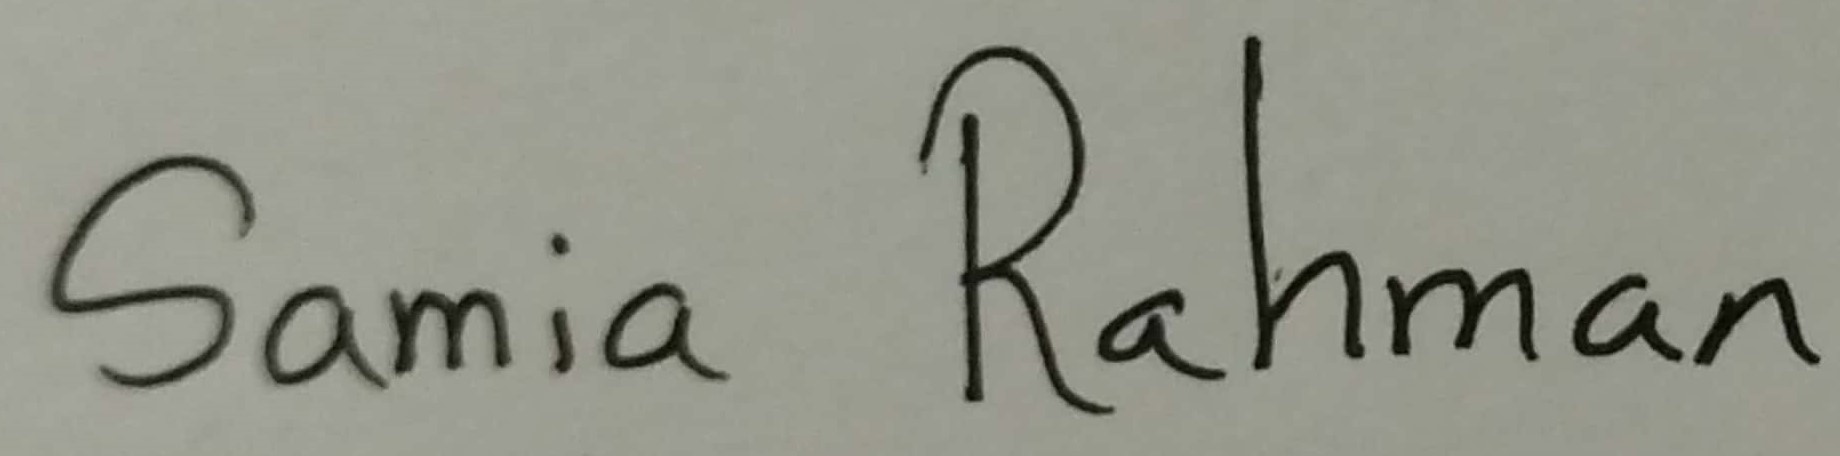 Samia Rahman